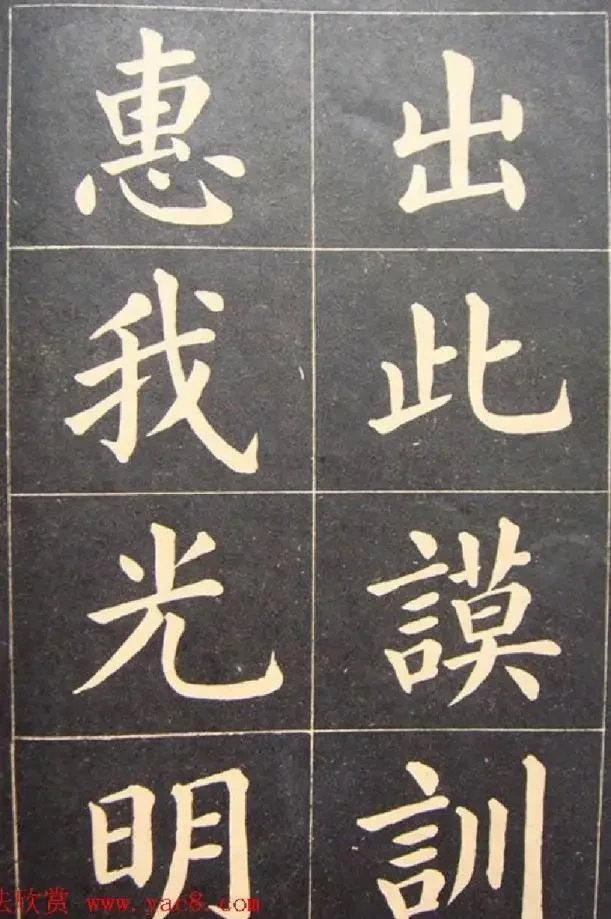 出此謨訓
惠我光明
法欣赏 www.yac8.com